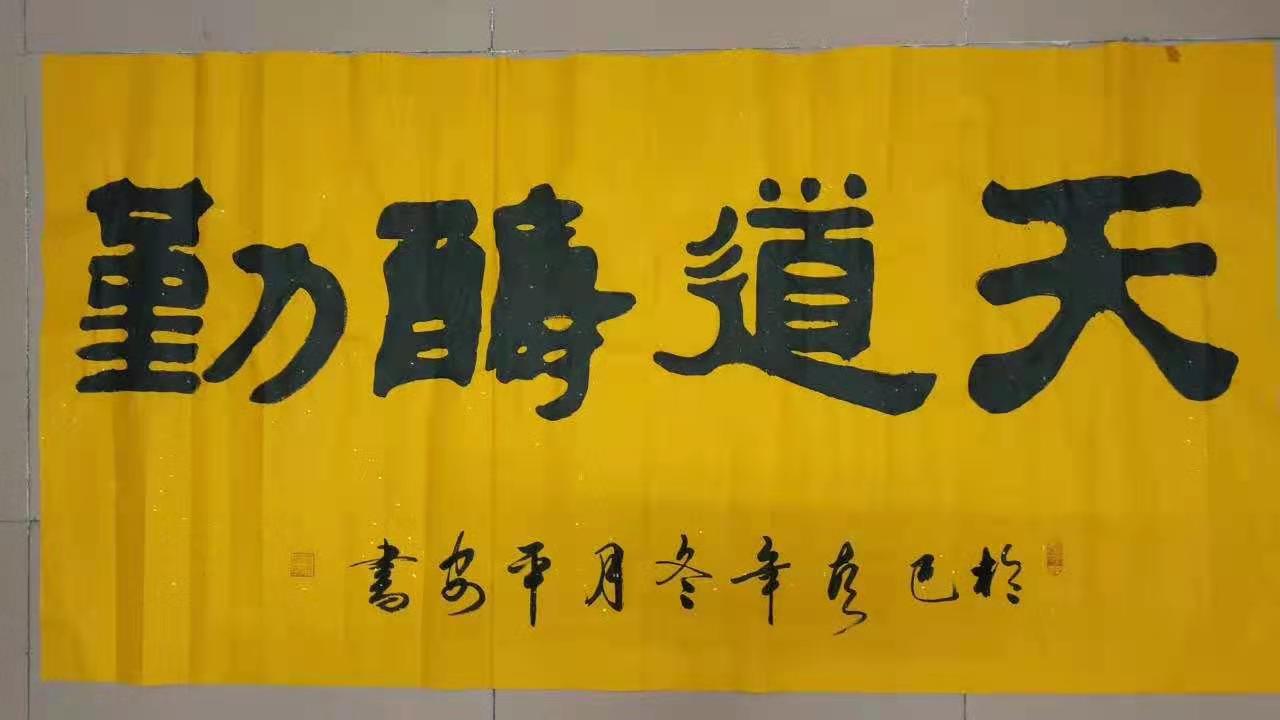 天道醻勤
於己亥年冬月平安書